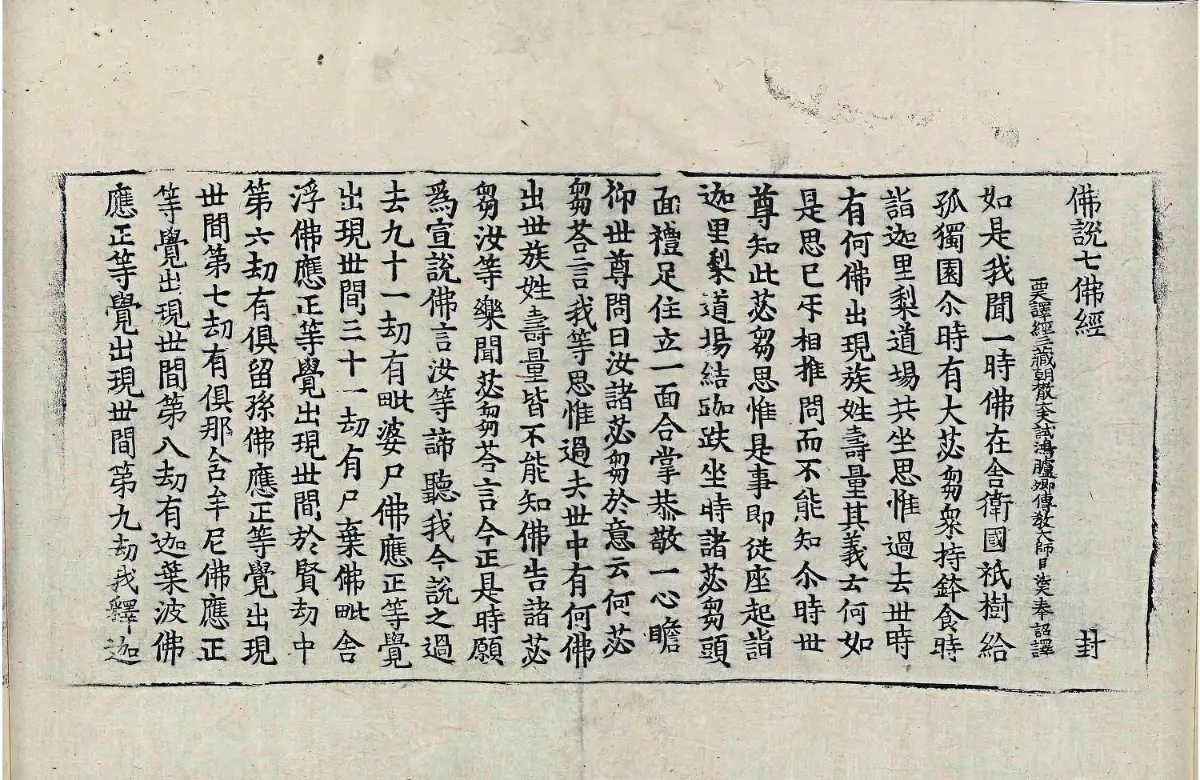 佛說七佛經 封
西天譯經三藏朝散大夫試鴻臚卿傳教大師臣法天奉詔譯
如是我聞一時佛在舍衛國祇樹給
孤獨園尒時有大苾芻衆持鉢食時
詣迦里梨道場共坐思惟過去丗時
有何佛出現族姓壽量其義云何如
是思已㸦相推問而不能知尒時丗
尊知此苾芻思惟是事即從座起詣
迦里梨道場結跏趺坐時諸苾芻頭
面禮足住立一面合掌恭敬一心瞻
仰世尊問曰汝諸苾芻於意云何苾
芻荅言我等思惟過去丗中有何佛
出丗族姓壽量皆不能知佛告諸苾
芻汝等樂聞苾芻荅言今正是時願
爲宣說佛言汝等諦聽我今說之過
去九十一劫有毗婆尸佛應正等覺
出現丗間三十一劫有尸棄佛毗舍
浮佛應正等覺出現丗間於賢劫中
第六劫有俱留孫佛應正等覺出現
丗間第七劫有俱那含牟尼佛應正
等覺出現丗間第八劫有迦葉波佛
應正等覺出現丗間第九劫我釋迦